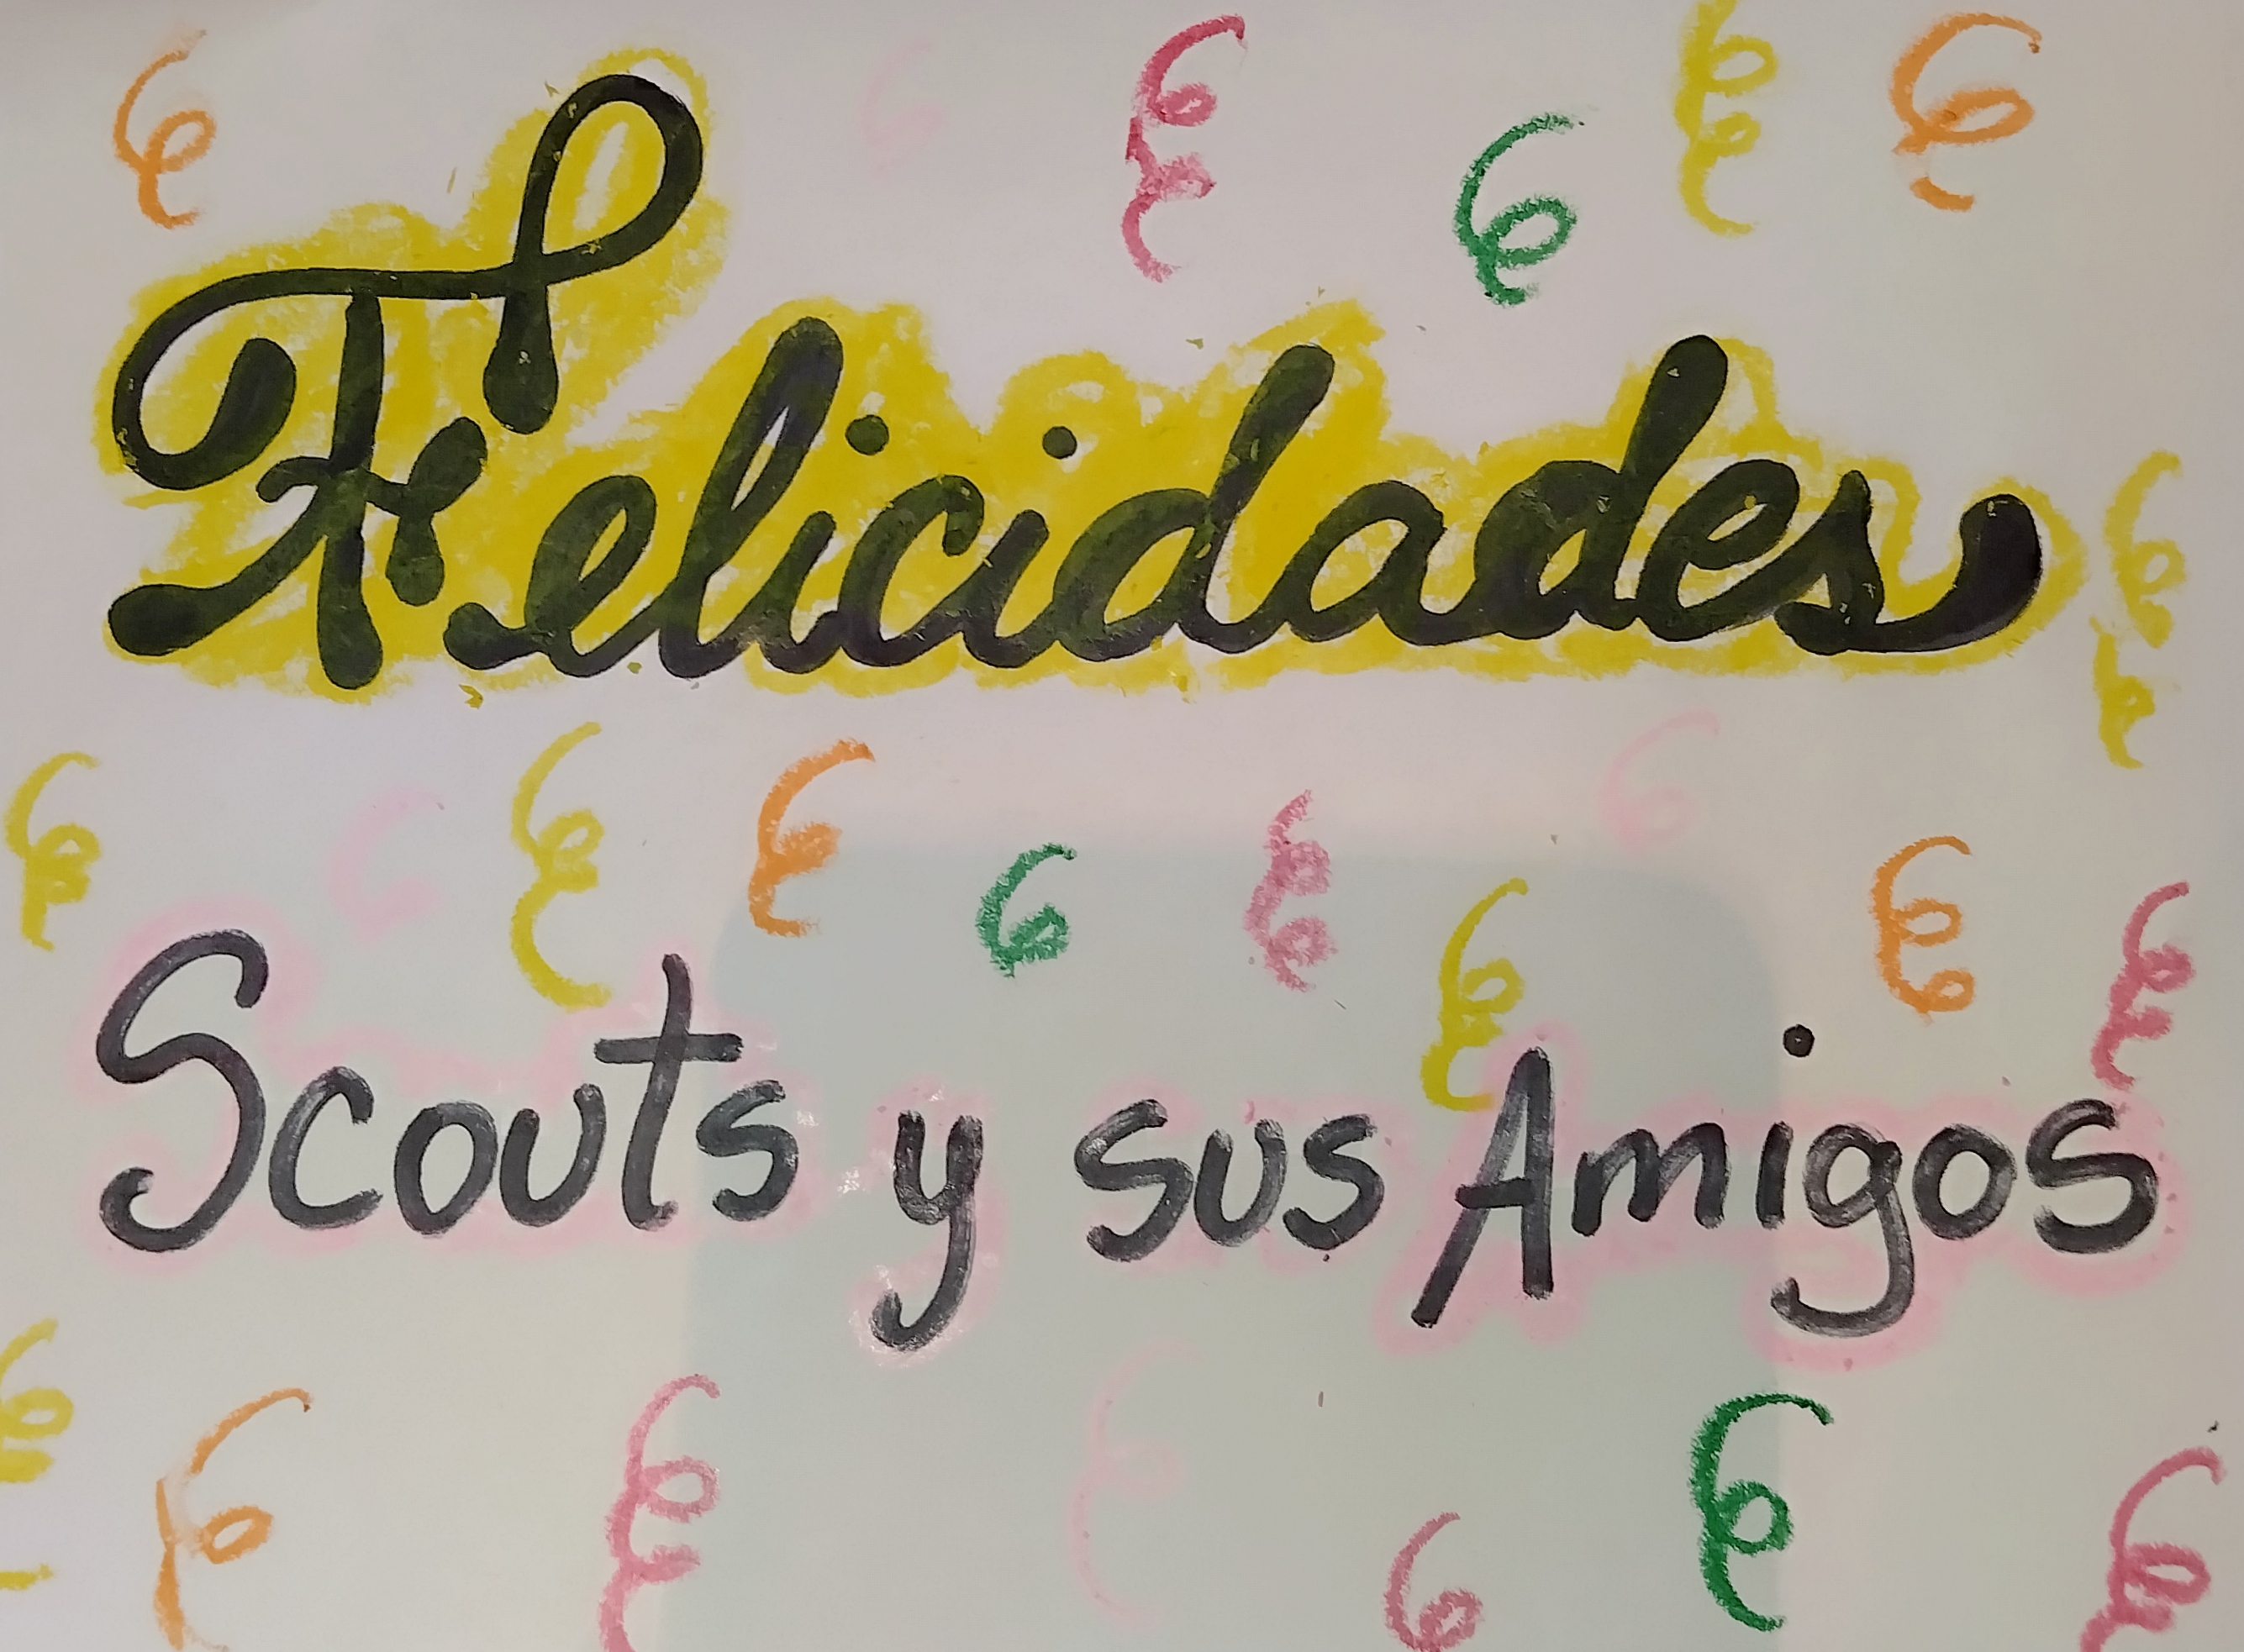 Felicidades
Scouts y sus Amigos